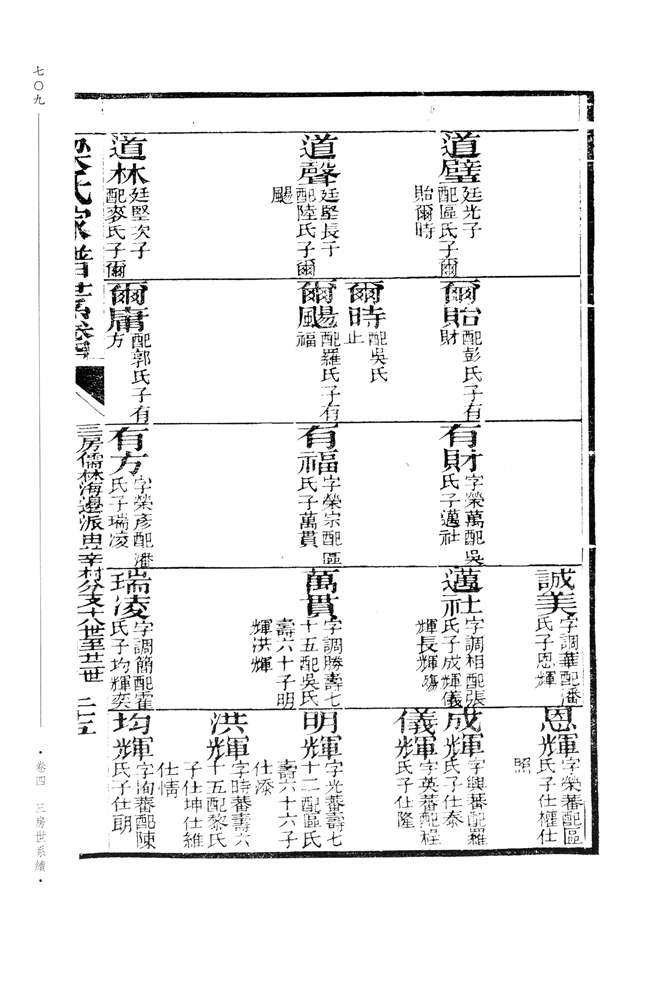 道璧
廷光子
配區氏子爾
貽爾時
道聲
廷堅長子
配陸氏子爾
颺
道林
廷堅次子
配麥氏子爾
爾貽
配彭氏子有
財
爾時
配吳氏
止
爾颺
配羅氏子有
福
爾庸
配郭氏子有
方
有財
字榮萬配吳
氏子邁社
有福
字榮宗配區
氏子萬貫
有方
字榮彥配潘
氏子瑞凌
誠美
字調華配潘
氏子恩輝
邁社
字調相配張
氏子成輝儀
輝長輝殤
萬貫
字調勝壽七
十五配吳氏
壽六十子明
輝洪輝
瑞凌
字調簡配霍
氏子均輝奕
恩輝
字榮蕃配區
氏子仕權仕
照
成輝
字興蕃配羅
氏子仕泰
儀輝
字英蕃配程
氏子仕隆
明輝
字光蕃壽七
十二配區氏
壽六十六子
仕添
洪輝
字時蕃壽六
十五配黎氏
子仕坤仕維
仕情
均輝
字洵蕃配陳
氏子仕朗
氏家譜卷四
三房儒林海邊派由辛村分支十八世至廿二世 二十五
七〇九
·卷四 三房世系續·